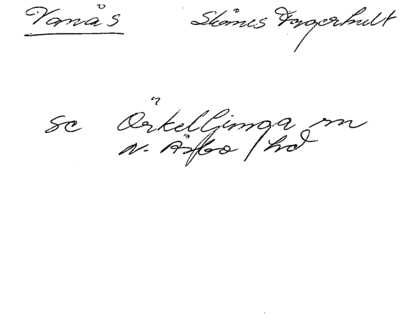 Vanås Skånes Fagerhult
Sc Örkelljunga sn
N. Åsbo hd